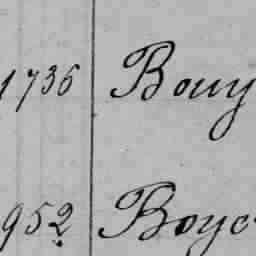 1736 Bouy
952 Boyc